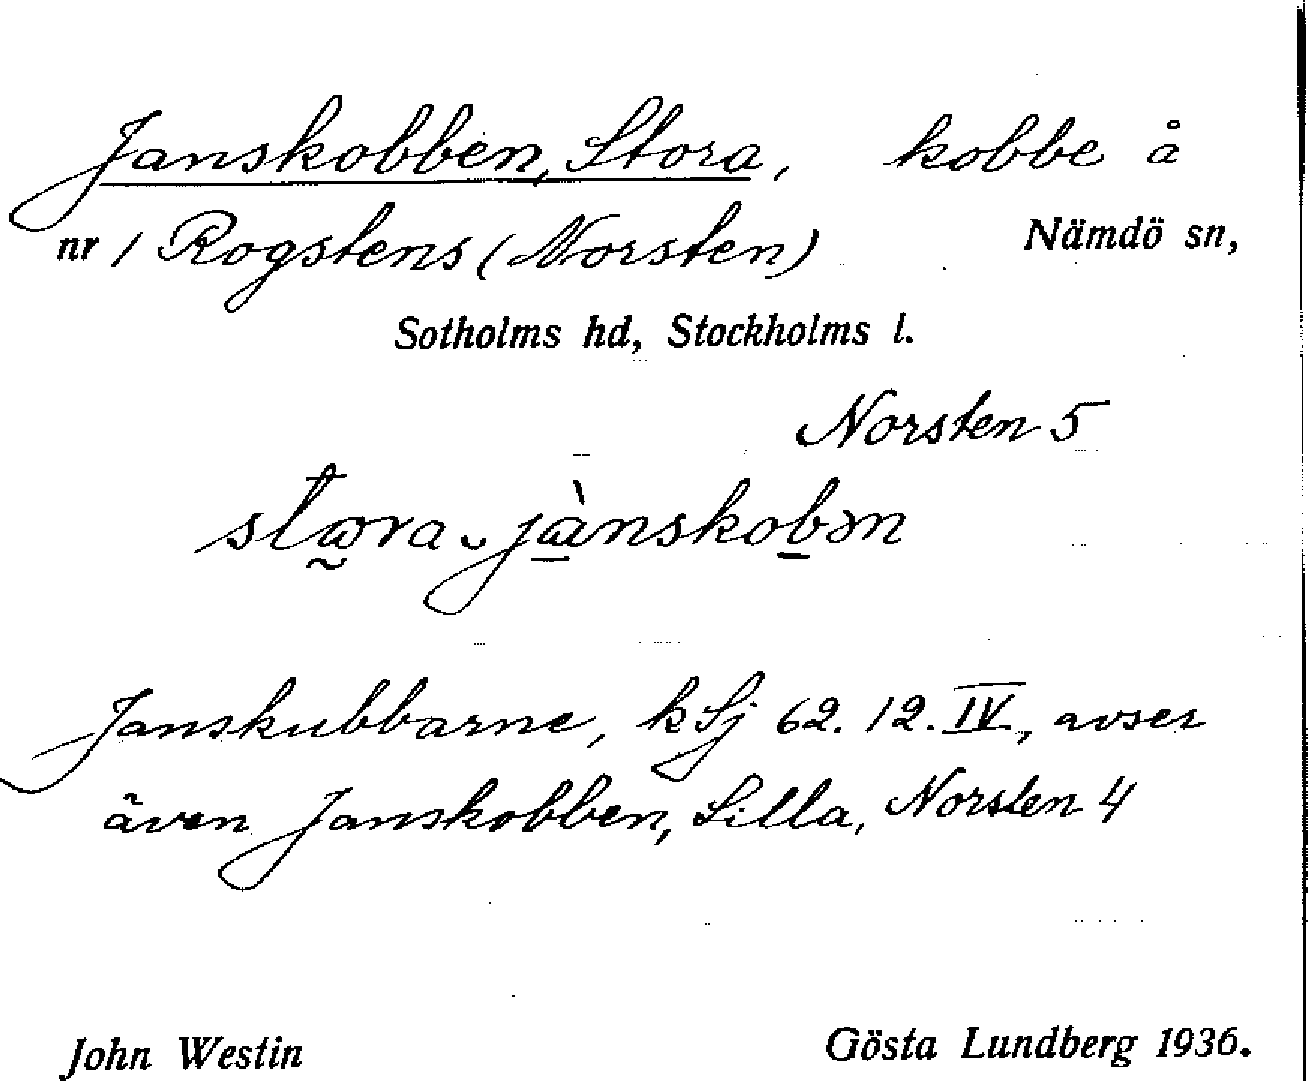 Janskobben, Stora, kobbe å
nr 1 Rogstens (Norsten) Nämdö sn,
Sotholms hd, Stockholms l.
Norsten 5
Janskubbarne, k Sj 62. 12. IV., avser
även Janskobben, Lilla, Norsten 4
John Westin Gösta Lundberg 1936.